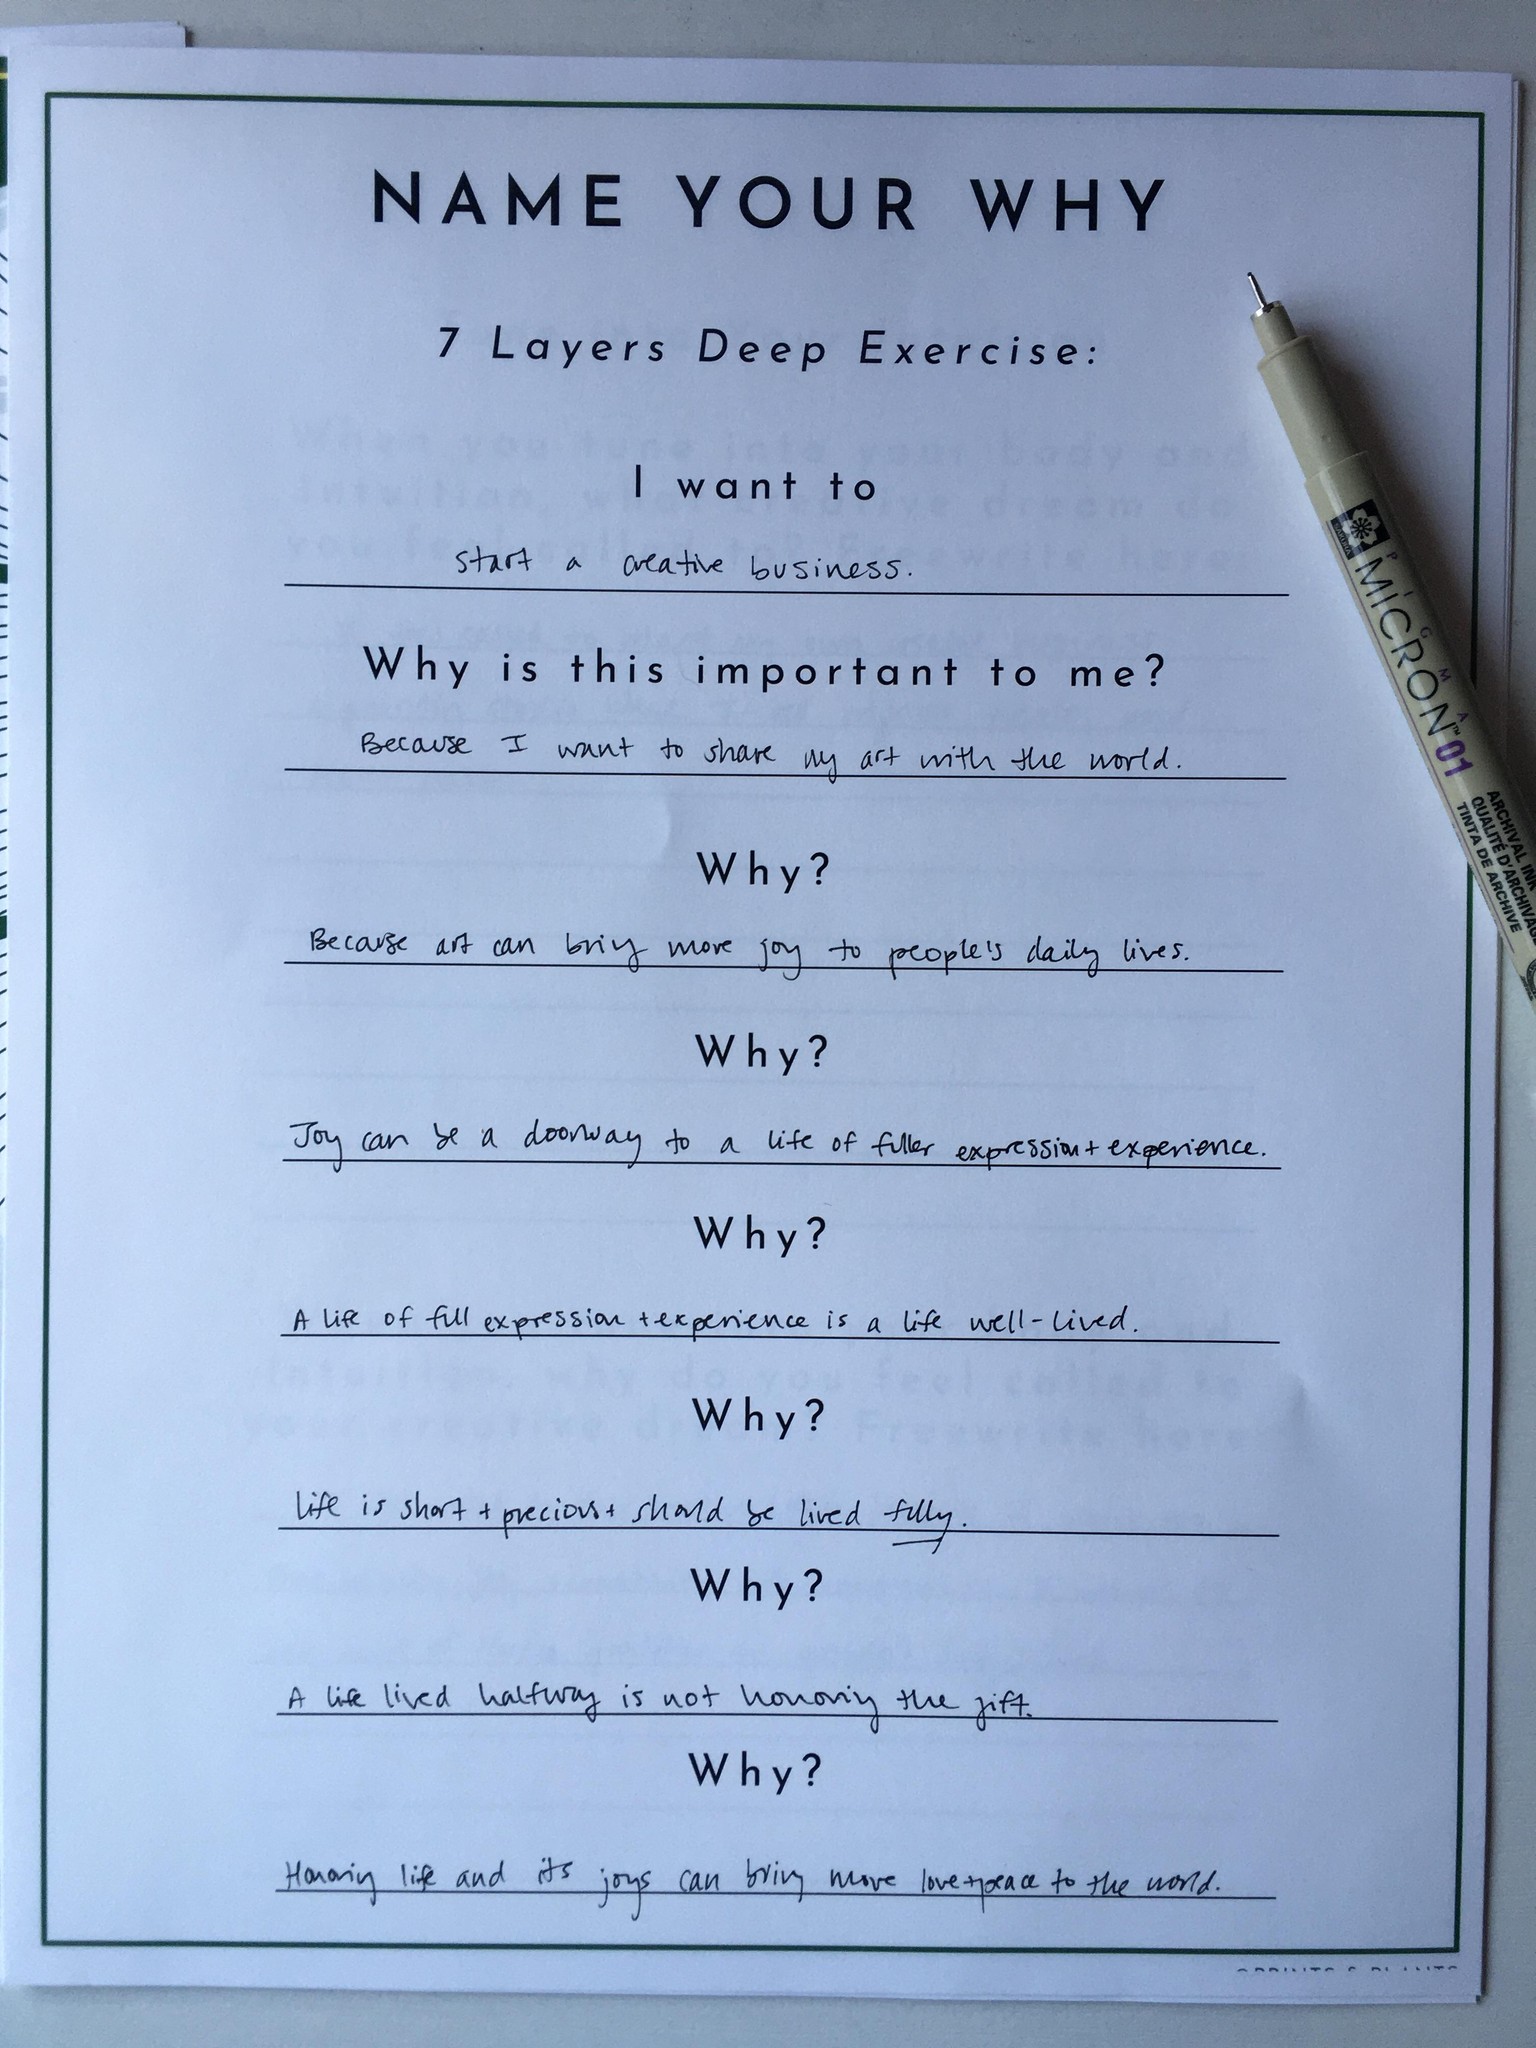 NAME YOUR WHY
7 Layers Deep Exercise:
I want to
start a creative business.
Why is this important to me?
Because I want to share my art with the world.
Why?
Because art can bring more joy to people's daily lives.
Why?
Joy can be a doorway to a life of fuller expression + experience.
Why?
A life of full expression + experience is a life well-lived.
Why?
Life is short + precious + should be lived fully.
Why?
A life lived halfway is not honoring the gift.
Why?
Honoring life and its joys can bring more love + peace to the world.
PIGMA
MICRON™ 01
ARCHIVAL INK
QUALITÉ D'ARCHIVAGE
TINTA DE ARCHIVE